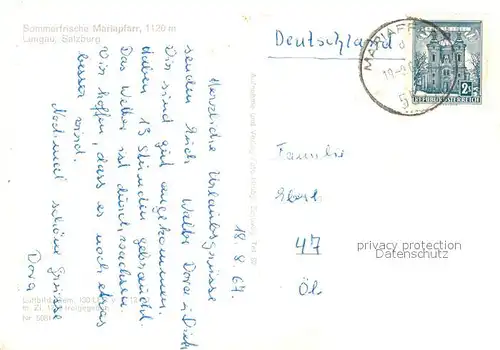 Sommerfrische Mariapfarr, 1120 m
Lungau, Salzburg
18.8.64.
Herzliche Urlaubsgrüsse
senden Euch Walter Dora u. Dieter
Wir sind gut angekommen.
Haben 13 Stunden gebraucht.
Das Wetter ist durchwachsen.
Wir hoffen, dass es noch etwas
besser wird.
Nochmal schöne Grüsse
Dora
Deutschland
MARIAPF
2
REPUBLIK ÖSTERREICH
Familie
47
privacy protection
Datenschutz